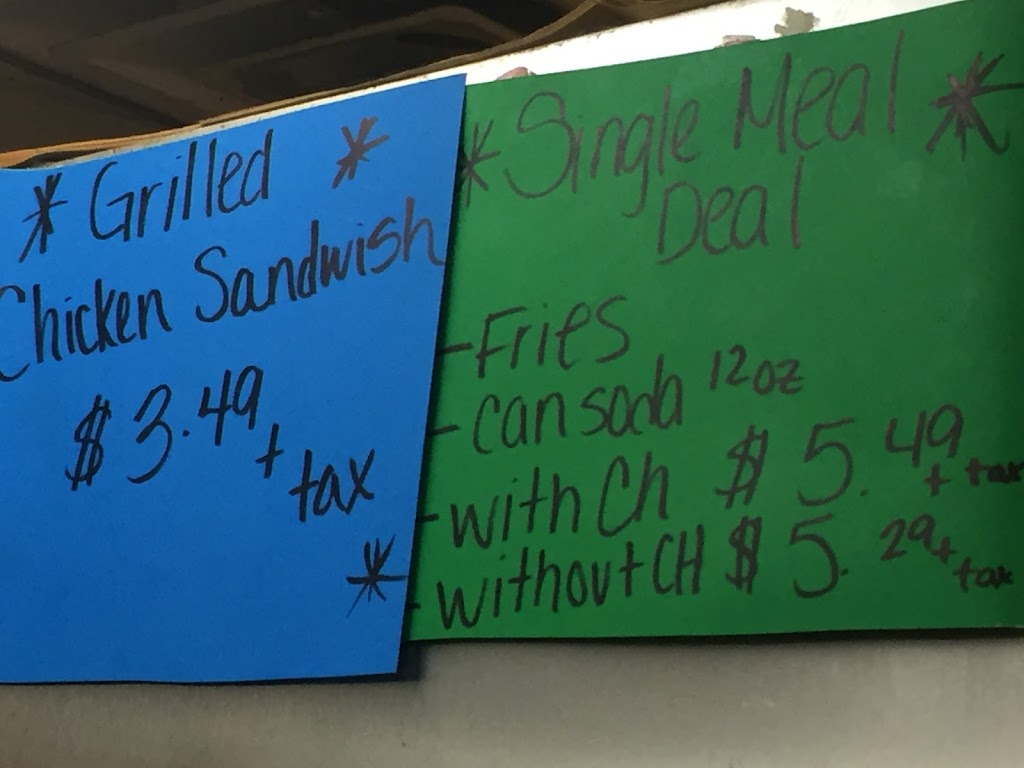 * Grilled *
Chicken Sandwish
$3.49
+ tax
*
* Single Meal *
Deal
- Fries
- can soda 12oz
- with Ch $5.49 + tax
- without CH $5.29 + tax